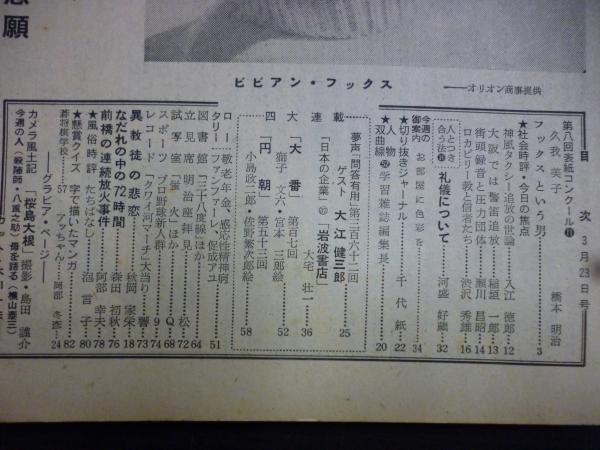 悲願
ビビアン・フックス
——オリオン商事提供
目次 3月23日号
第八回表紙コンクール⑪
久我美子 橋本明治
フックスという男 3
★社会時評・今日の焦点
神風タクシー追放の世論 入江徳郎 12
大阪では警笛追放 稲垣一郎 13
街頭録音と圧力団体 瀬川昌昭 14
ロカビリー教と信者たち 渋沢秀雄 16
人とつき合う法⑪ 礼儀について 河盛好蔵 32
今週の御案内 お部屋に色彩を 34
★切り抜きジャーナル 千代紙 22
★人物双曲線 学習雑誌編集長 20
夢声「問答有用」第三百六十二回
ゲスト 大江健三郎 25
連載
「日本の企業」 「岩波書店」 大宅壮一 36
大「大番」 第百七回
獅子文六・宮本三郎絵 52
四「円朝」 第五十三回
小島政二郎・佐野繁次郎絵 58
ロータリー 敬老年金、感応性精神病
ファンファーレ、促成アユ 51
図書館「三十八度線」ほか 64
立見席 明治座拝見 松 72
試写室「蛍火」ほか Q 68
スポーツ プロ野球新人群 Q 9
レコード 「クワイ河マーチ」大当り 響 74
異教徒の悲恋 秋岡家栄 73
なだれの中の72時間 森田初秋 18
前橋の連続放火事件 阿部幸夫 76
★風俗時評 たちばなし 泡言子 78
★懸賞クイズ 字で描いたマンガ 80
碁将棋学校 57 アッちゃん 岡部冬彦 82
——グラビア・ページ——
カメラ風土記「桜島大根」 撮影・島田謹介 24
今週の人(殺陣師・八重之助) 母を語る(横山泰三)